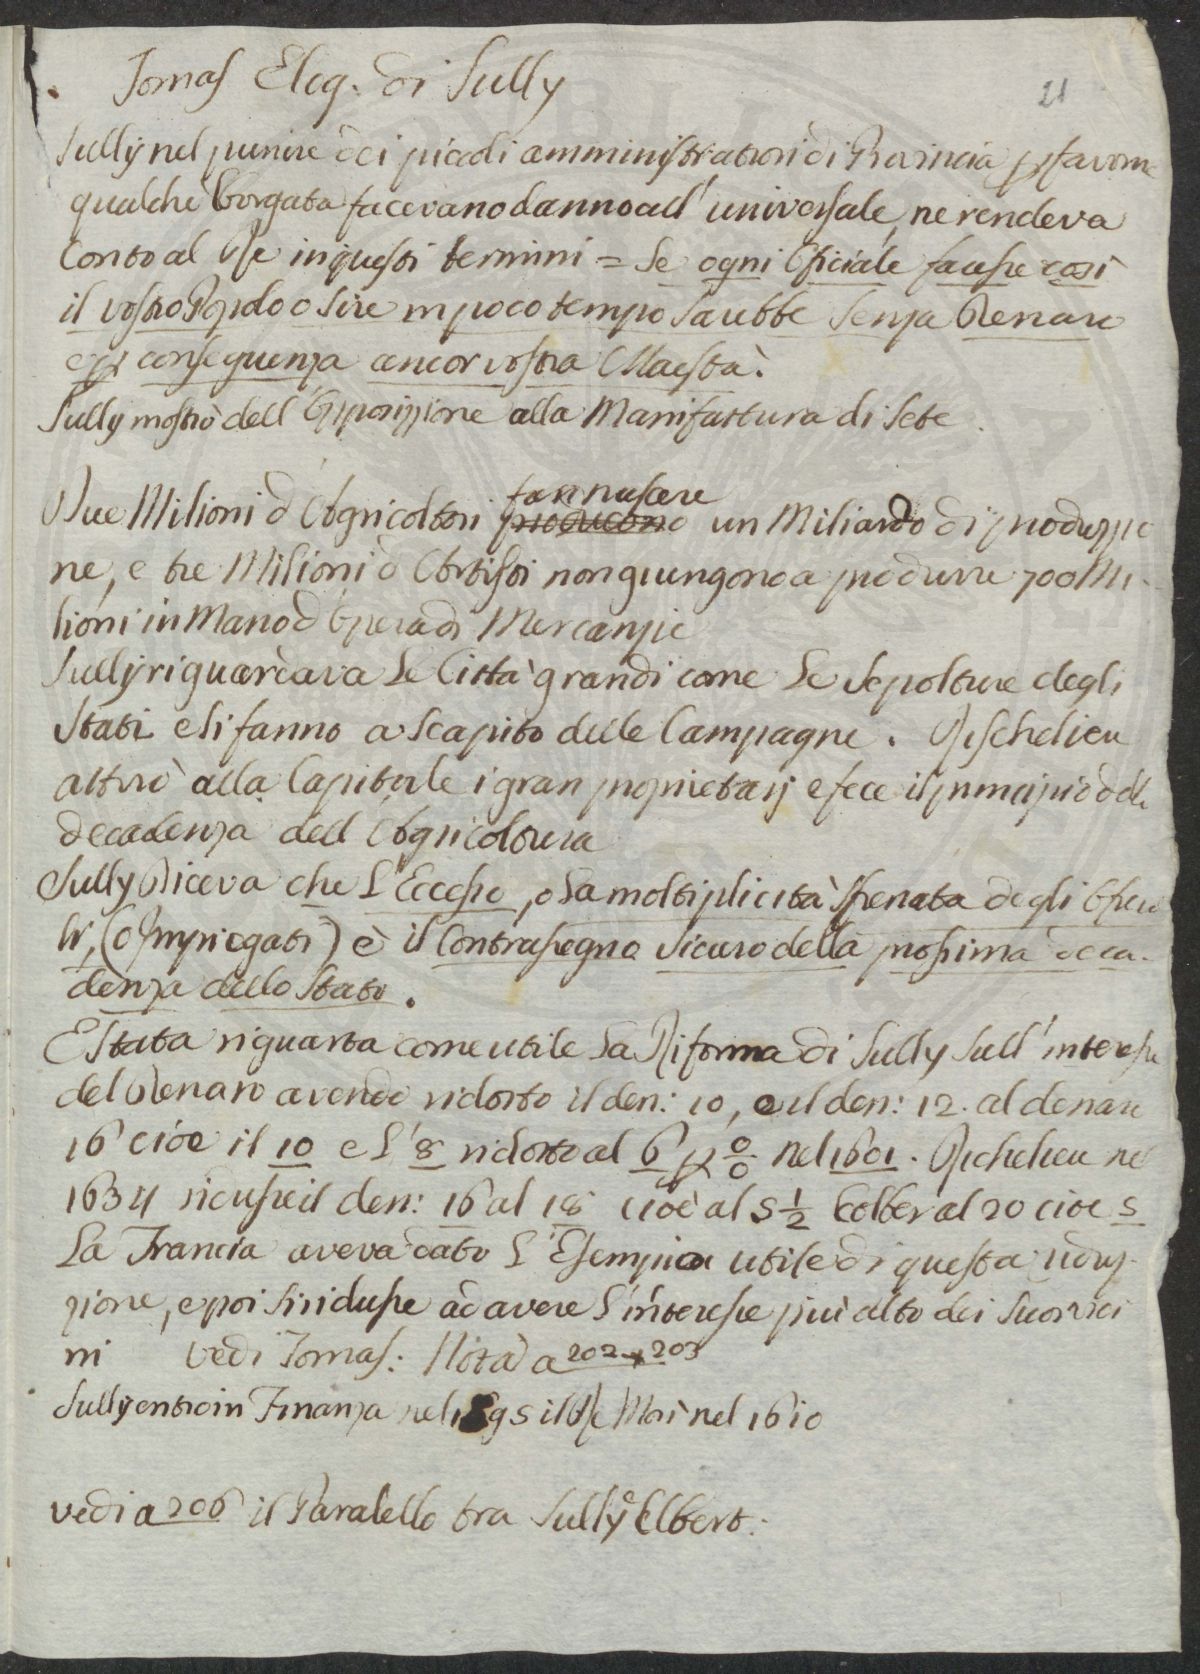 Tomas Elog. di Sully
21
Sully nel punire dei piccoli amministratori di Provincia p favorire
qualche Borgata facevano danno all' universale, ne rendeva
Conto al Re in questi termini = Se ogni Oficiale facesse così
il vostro Popolo o Sire in poco tempo sarebbe senza Denaro
e p conseguenza ancor vostra Maestà.
Sully mostrò dell' Opposizzione alla Manifattura di Sete.
Due Milioni d'Agricoltori fan nascere
producono un Miliardo di produzzio
ne, e tre Milioni d'Artisti non giungono a produrre 700 Mi-
lioni in Mano d'Opera di Mercanzie
Sully riguardava Le Città grandi come Le Sepolture degli
Stati e si fanno a scapito delle Campagne. Rischelieu
attirò alla Capitale i gran proprietarj e fece il principio della
decadenza dell' Agricoltura
Sully Diceva che L'Eccesso, o La moltiplicità sfrenata degli Oficia
li, (o Impiegati) è il Contrasegno sicuro della prossima deca-
denza dello Stato.
E Stata riguarta come utile La Riforma di Sully sull' interesse
del Denaro avendo ridotto il den: 10, e il den: 12. al denaro
16 cioe il 10 e L'8 ridotto al 6 p 0/0 nel 1601. Richelieu nel
1634 ridusse il den: 16 al 18 cioè al 5 1/2 Colber al 20 cioe 5
La Francia aveva dato L'Esempio utile di questa riduz-
zione, e poi si ridusse ad avere L'interesse più alto dei suoi vici
ni vedi Tomas: Nota a 202 e 203
Sully entrò in Finanza nel 1595 il Re Morì nel 1610
vedi a 206 il Paralello tra Sully e Colbert: